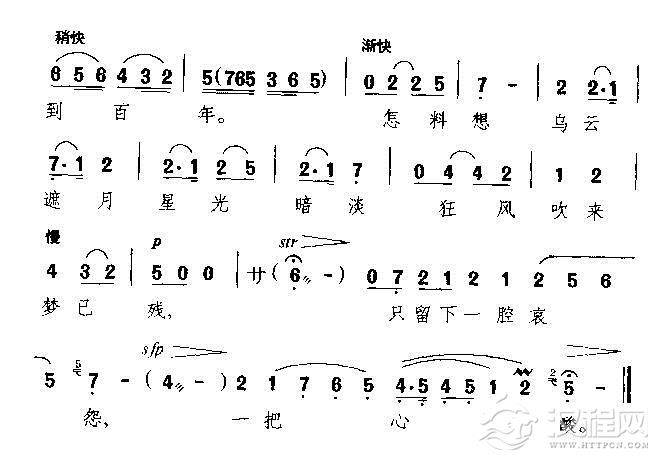 稍快 渐快
6 5 6 4 3 2 | 5 (765 3 6 5) | 0 2 2 5 7 - | 2 2·1
到 百 年。 怎 料 想 乌 云
7·1 2 | 2·1 2 5 | 2·1 7 | 0 4 4 2 | 1 2
遮 月 星 光 暗 淡 狂 风 吹 来
慢 p str
4 3 2 | 5 0 0 | 廾 ( 6 - ) 0 7 2 1 2 1 2 5 6
梦 已 残, 只 留 下 一 腔 哀
sfp
5 7 - ( 4 - ) 2 1 7 6 5 4·5 4 5 1 2 5 -
怨, 一 把 心 酸。
汉程网
HTTPCN.COM